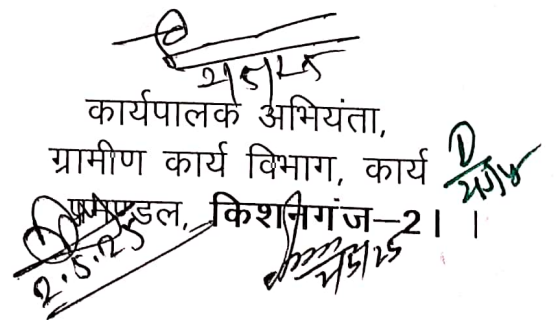 कार्यपालक अभियंता,
ग्रामीण कार्य विभाग, कार्य
प्रमण्डल, किशनगंज–2। ।
2.5.25